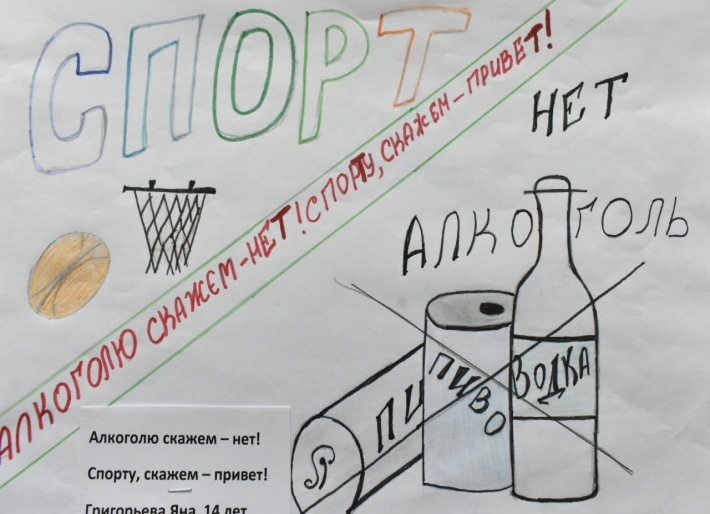 СПОРТ
АЛКОГОЛЮ СКАЖЕМ – НЕТ! СПОРТУ, СКАЖЕМ – ПРИВЕТ!
НЕТ
АЛКОГОЛЬ
ПИ
ПИВО
ВОДКА
Алкоголю скажем – нет!
Спорту, скажем – привет!
Григорьева Яна, 14 лет